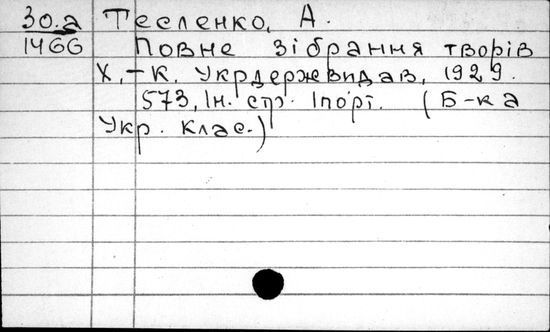 30.а Тесленко, А.
1466 Повне зібрання творів
Х.–К. Укрдержвидав, 1929.
573, Ін. стр. Іпорт. (Б-ка
Укр. клас.)